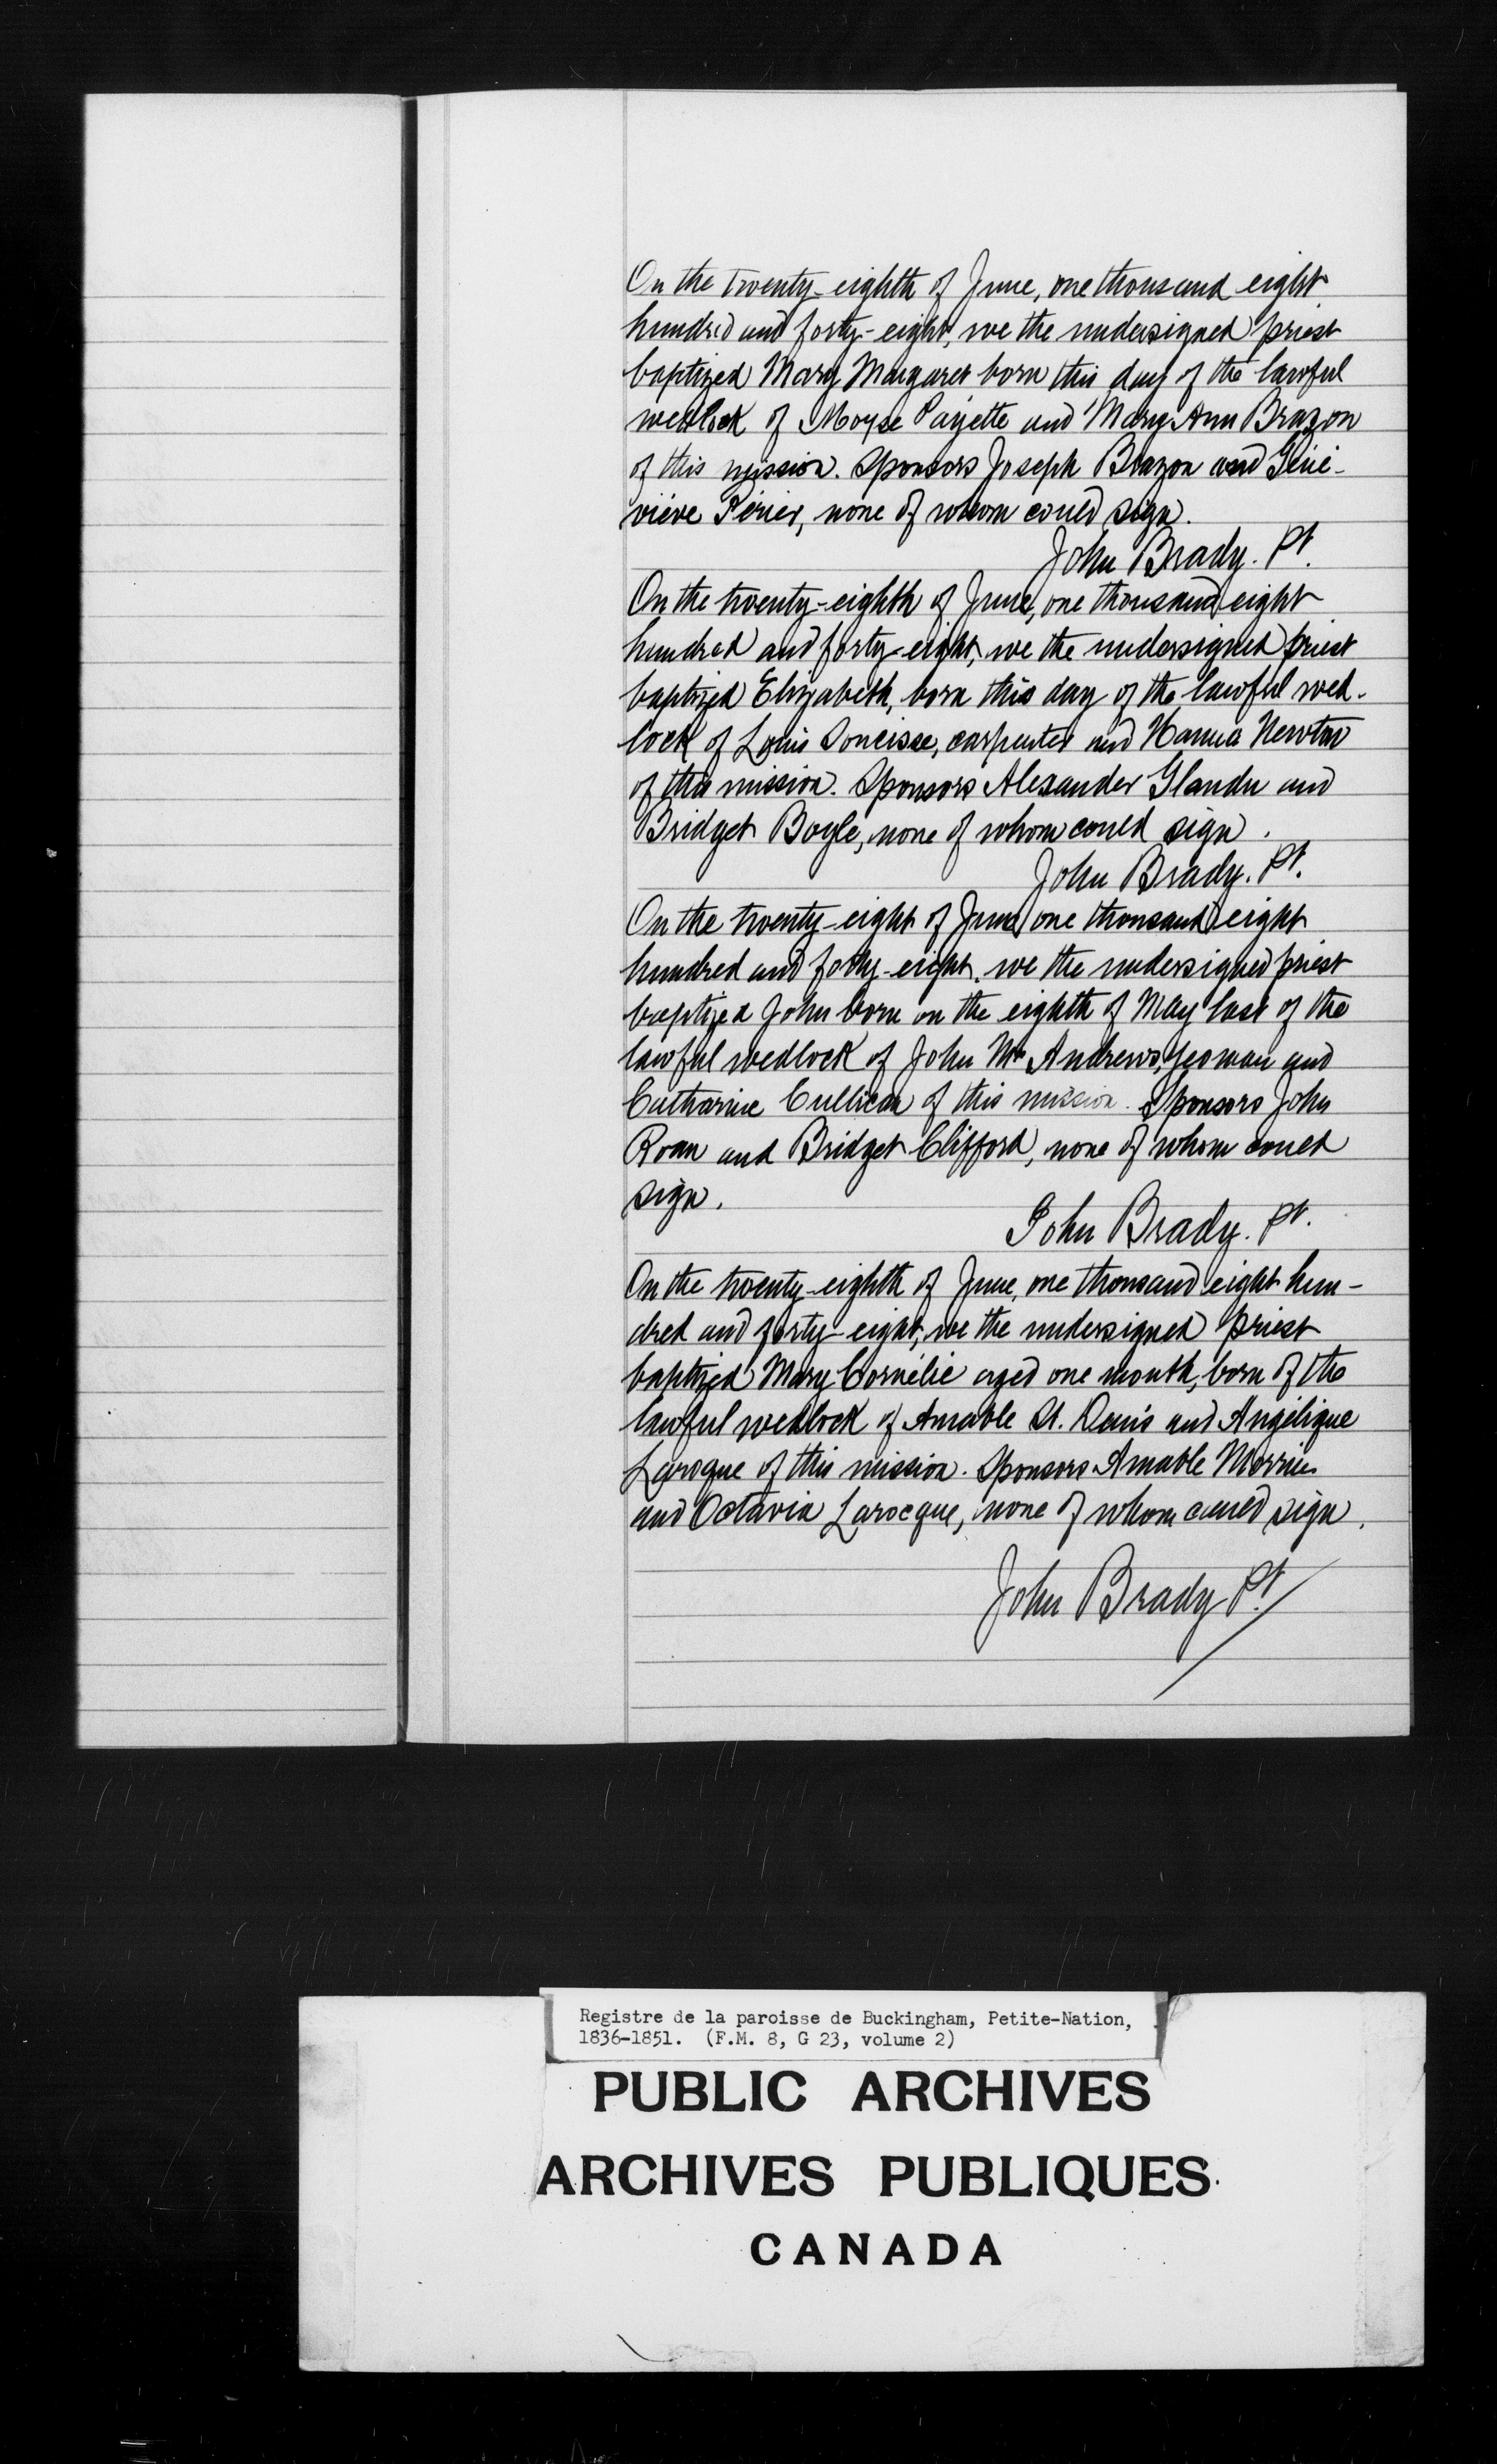 On the twenty-eighth of June, one thousand eight
hundred and forty-eight, we the undersigned priest
baptized Mary Margaret born this day of the lawful
wedlock of Moyse Payette and Mary Ann Brazon
of this mission. Sponsors Joseph Brazon and Géné-
viève Périer, none of whom could sign.
John Brady. Pt.
On the twenty-eighth of June, one thousand eight
hundred and forty-eight, we the undersigned priest
baptized Elizabeth, born this day of the lawful wed-
lock of Louis carpenter and Hanna Newton
of this mission. Sponsors Alexander Glandu and
Bridget Boyle, none of whom could sign.
John Brady. Pt.
On the twenty-eight of June one thousand eight
hundred and forty-eight, we the undersigned priest
baptized John born on the eighth of May last of the
lawful wedlock of John Mc Andrews, yeoman and
Catharine Cullican of this mission. Sponsors John
Roan and Bridget Clifford, none of whom could
sign.
John Brady. Pt.
On the twenty-eighth of June, one thousand eight hun-
dred and forty-eight, we the undersigned priest
baptized Mary Cornélie aged one month, born of the
lawful wedlock of Amable St. Denis and Angélique
Laroque of this mission. Sponsors Amable
and Octavia Larocque, none of whom could sign.
John Brady Pt.
Registre de la paroisse de Buckingham, Petite-Nation,
1836-1851. (F.M. 8, G 23, volume 2)
PUBLIC ARCHIVES
ARCHIVES PUBLIQUES
CANADA